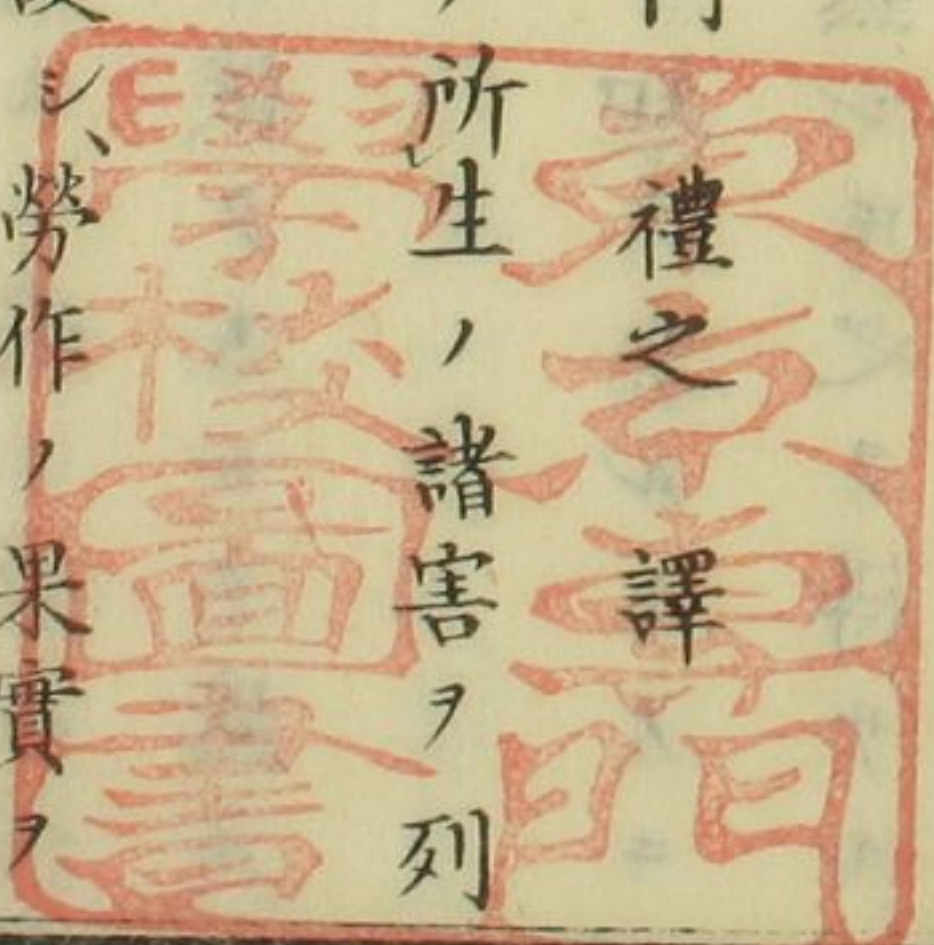 禮之譯
所生ノ諸害ヲ列
シ、勞作ノ果實ヲ
東京専門
學校圖書